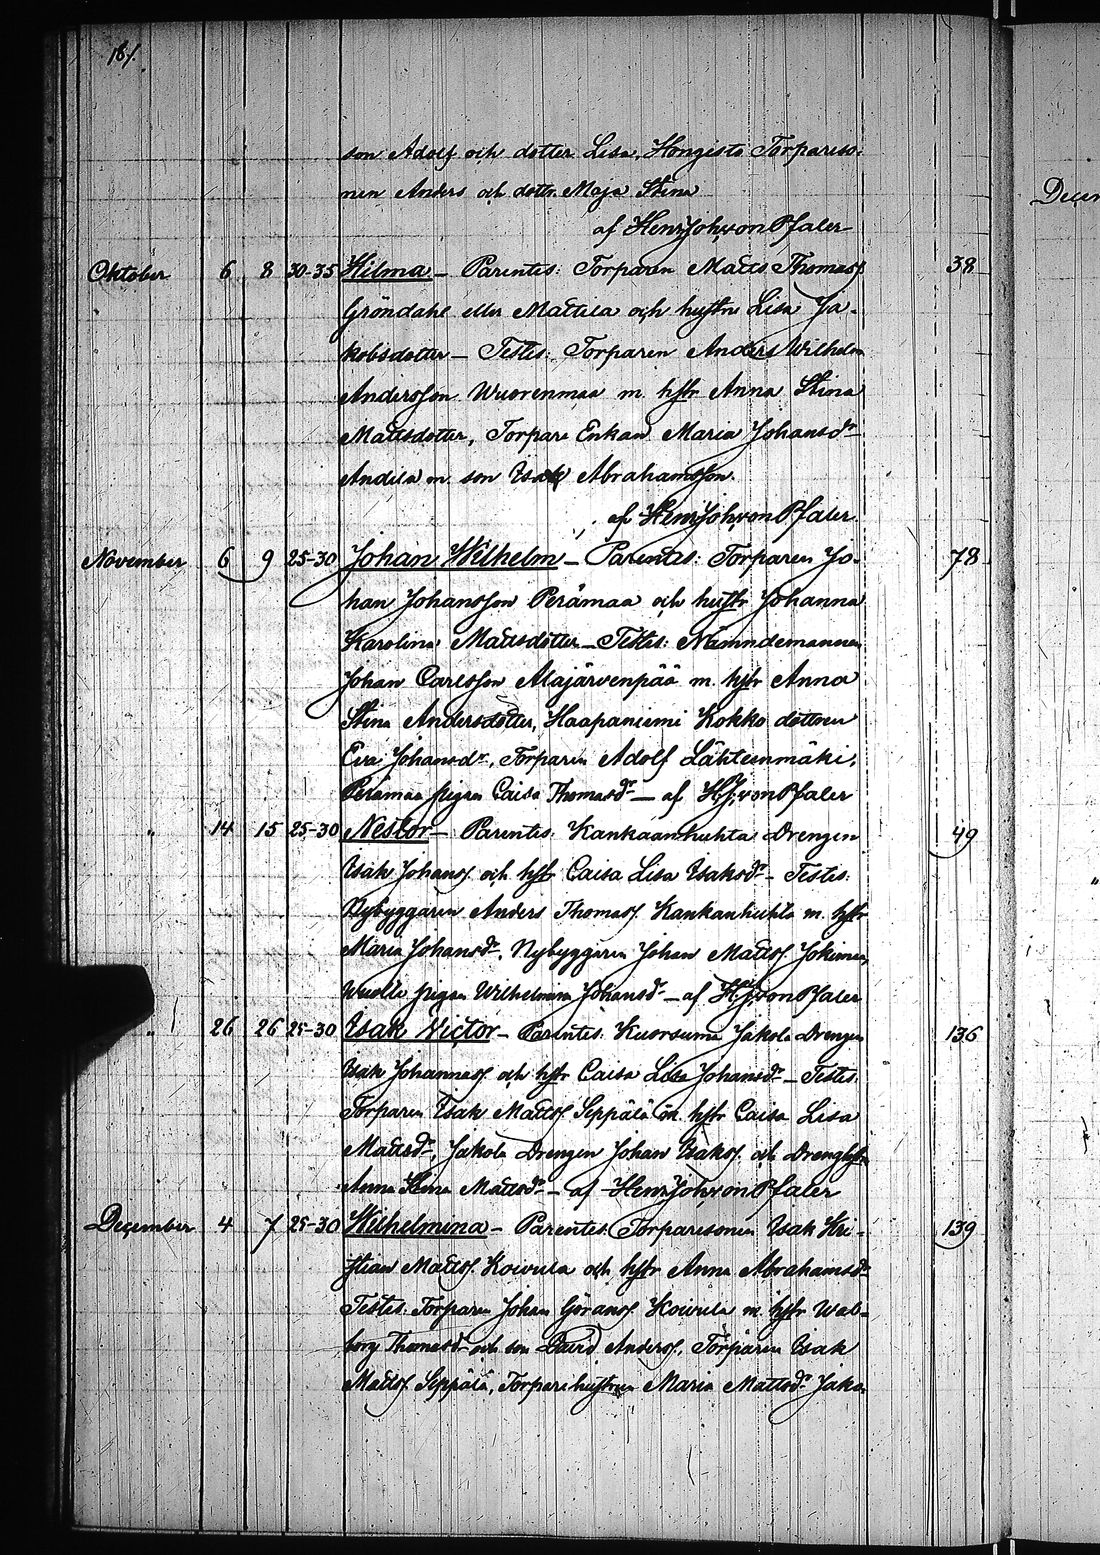 181.
son Adolf och dotter Lisa, Hongisto Torpareso-
nen Anders och dottr. Maja Stina
af HenrJoh,vonPfaler
Oktober 6 8 30-35 Hilma – Parentes: Torparen Matts Thomasf. 38
Gröndahl eller Mattila och hustru Lisa Ja-
kobsdotter – Testes: Torparen Anders Wilhelm
Andersson Wuorenmaa m. hstr Anna Stina
Mattsdotter, Torpare Enkan Maria Johansdr
Andila m. son Isak Abrahamsson.
af HenrJoh,vonPfaler
November 6 9 25-30 Johan Wilhelm – Parentes: Torparen Jo- 78
han Johansson Perämaa och hustr Johanna
Karolina Mattsdotter – Testes: Nämndemannen
Johan Carlsson Alajärvenpää m. hstr Anna
Stina Andersdotter, Haapaniemi Kokko dottren
Eva Johansdr, Torparen Adolf Lähteenmäki,
Perämaa pigan Caisa Thomasdr – af H.J,vonPfaler
" 14 15 25-30 Nestor – Parentes: Kankaanhuhta Drengen 49
Isak Johansf. och hstr Caisa Lisa Isaksdr – Testes:
Nybyggaren Anders Thomasf. Kankanhuhta m. hstr
Maria Johansdr, Nybyggaren Johan Mattsf. Jokinen,
pigan Wilhelmina Johansdr – af H.J,vonPfaler
" 26 26 25-30 Isak Victor – Parentes: Kuorsuma Jakola Drengen 136
Isak Johannesf. och hstr Caisa Lisa Johansdr – Testes:
Torparen Isak Mattsf. Seppälä m. hstr Caisa Lisa
Mattsdr, Jakola Drengen Johan Isaksf. och Drenghstr
Anna Stina Mattsdr – af HenrJoh,vonPfaler
December 4 7 25-30 Wilhelmina – Parentes: Torparesonen Isak Kri- 139
stian Mattsf. Koivula och hstr Anna Abrahamsdr
Testes: Torparen Johan Göransf. Koivula m. hstr Wal-
borg Thomasdr och son David Andersf., Torparen Isak
Mattsf. Seppälä, Torparehustrun Maria Mattsdr Jako-
Decem